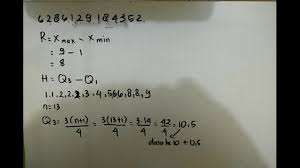 6 2 8 6 1 2 9 1 8 4 3 5 2.
R = x max - x min
= 9 - 1
= 8
H = Q3 - Q1
1,1,2,2,2,3,4,5,6,6,8,8,9
n = 13
Q3 = 3(n+1)/4 = 3(13+1)/4 = 3.14/4 = 42/4 = 10,5
10 + 0,5